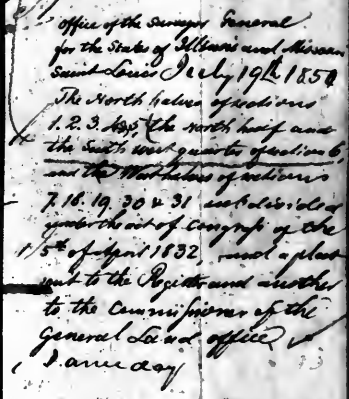 office of the Surveyor General
for the States of Illinois and Missouri
Saint Louis July 19th 1850
The North halves of sections
1. 2. 3. 4 & 5, the north half and
the South west quarter of section 6,
and the West halves of sections
7. 18. 19. 30 & 31 subdivided
under the act of Congress of the
5th of April 1832, and a plat
sent to the Register and another
to the Commissioner of the
General Land office
Same day